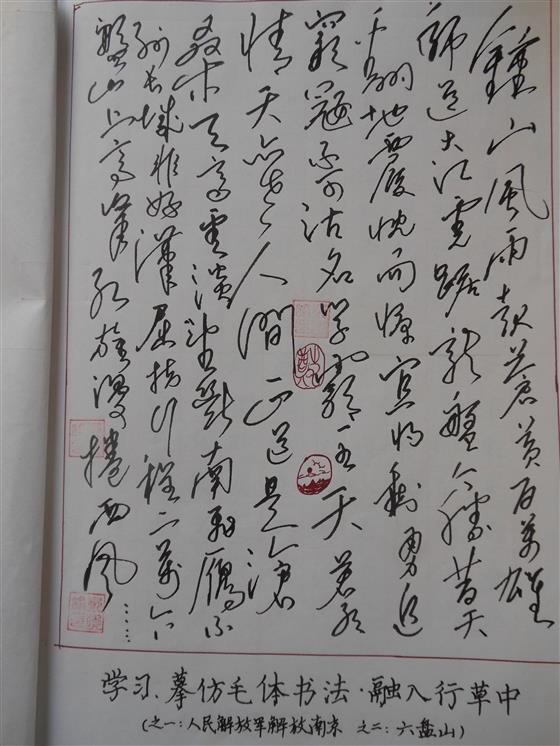 鐘山風雨起蒼黃百萬雄
師過大江虎踞龍盤今勝昔天
翻地覆慨而慷宜将剩勇追
窮寇不可沽名學霸王天若有
情天亦老人間正道是滄
桑天高雲淡望斷南飛雁不
到長城非好漢屈指行程二萬六
盤山上高峰紅旗漫捲西風……
学习、摹仿毛体书法·融入行草中
(之一：人民解放军解放南京 之二：六盘山)